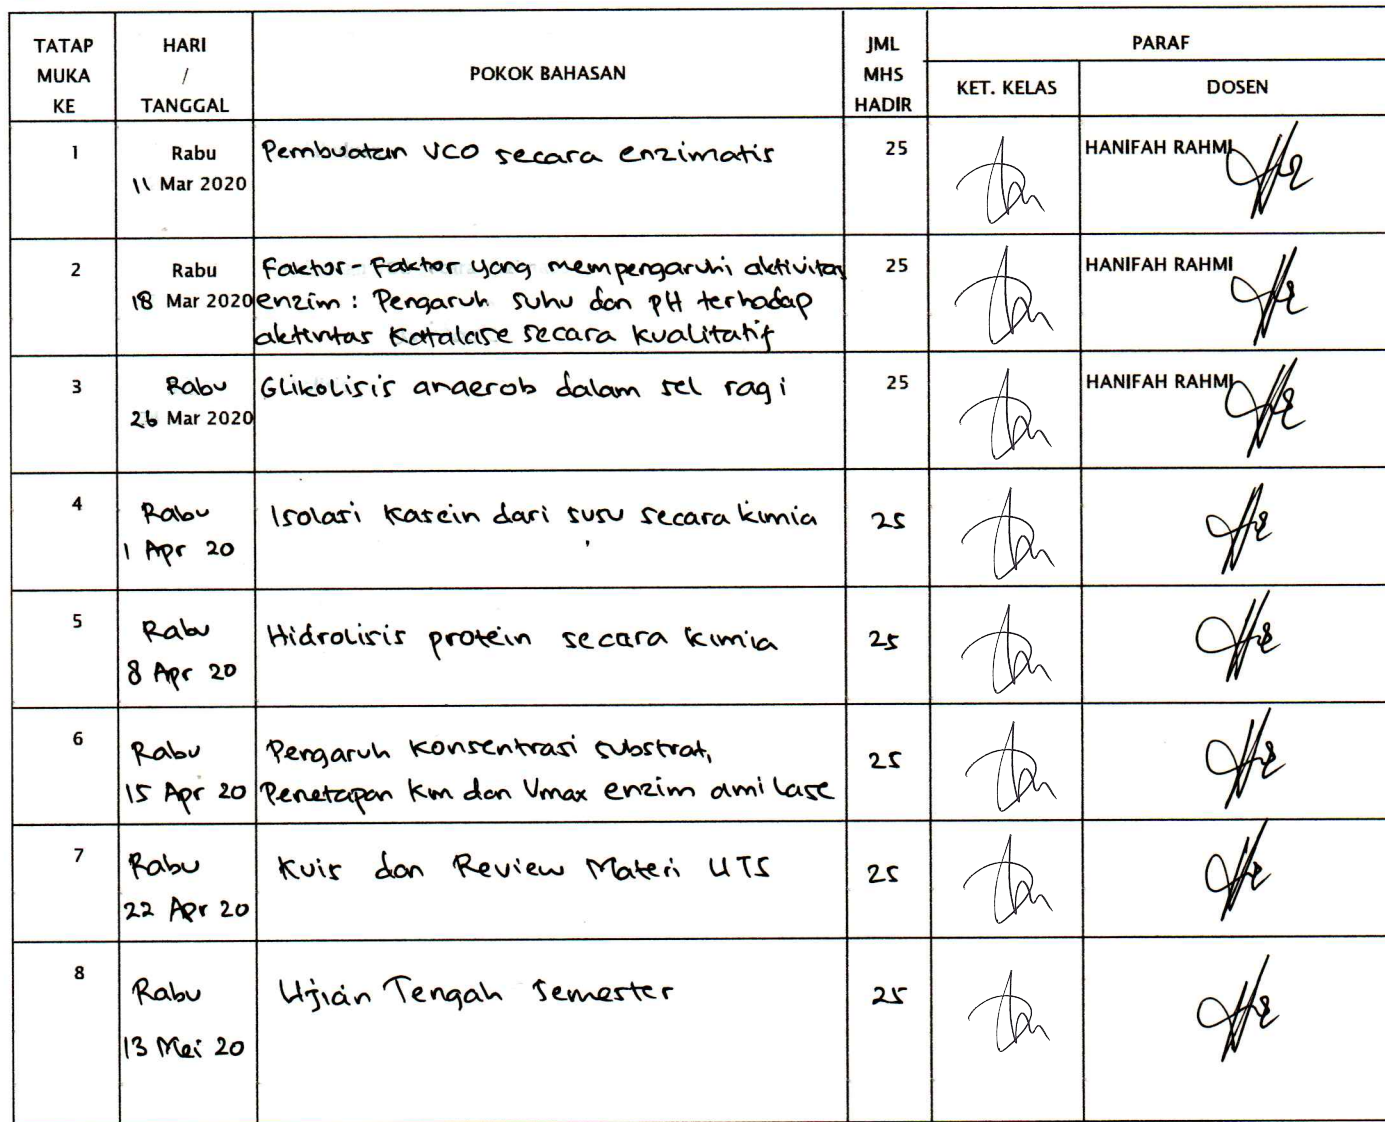 TATAP MUKA KE
HARI / TANGGAL
POKOK BAHASAN
JML MHS HADIR
PARAF
KET. KELAS
DOSEN
1
Rabu
11 Mar 2020
Pembuatan VCO secara enzimatis
25
HANIFAH RAHMI
2
Rabu
18 Mar 2020
Faktor-Faktor yang mempengaruhi aktivitas
enzim : Pengaruh suhu dan pH terhadap
aktivitas Katalase secara kualitatif
25
HANIFAH RAHMI
3
Rabu
26 Mar 2020
Glikolisis anaerob dalam sel ragi
25
HANIFAH RAHMI
4
Rabu
1 Apr 20
Isolasi Kasein dari susu secara kimia
25
5
Rabu
8 Apr 20
Hidrolisis protein secara kimia
25
6
Rabu
15 Apr 20
Pengaruh Konsentrasi substrat,
Penetapan Km dan Vmax enzim amilase
25
7
Rabu
22 Apr 20
Kuis dan Review Materi UTS
25
8
Rabu
13 Mei 20
Ujian Tengah Semester
25